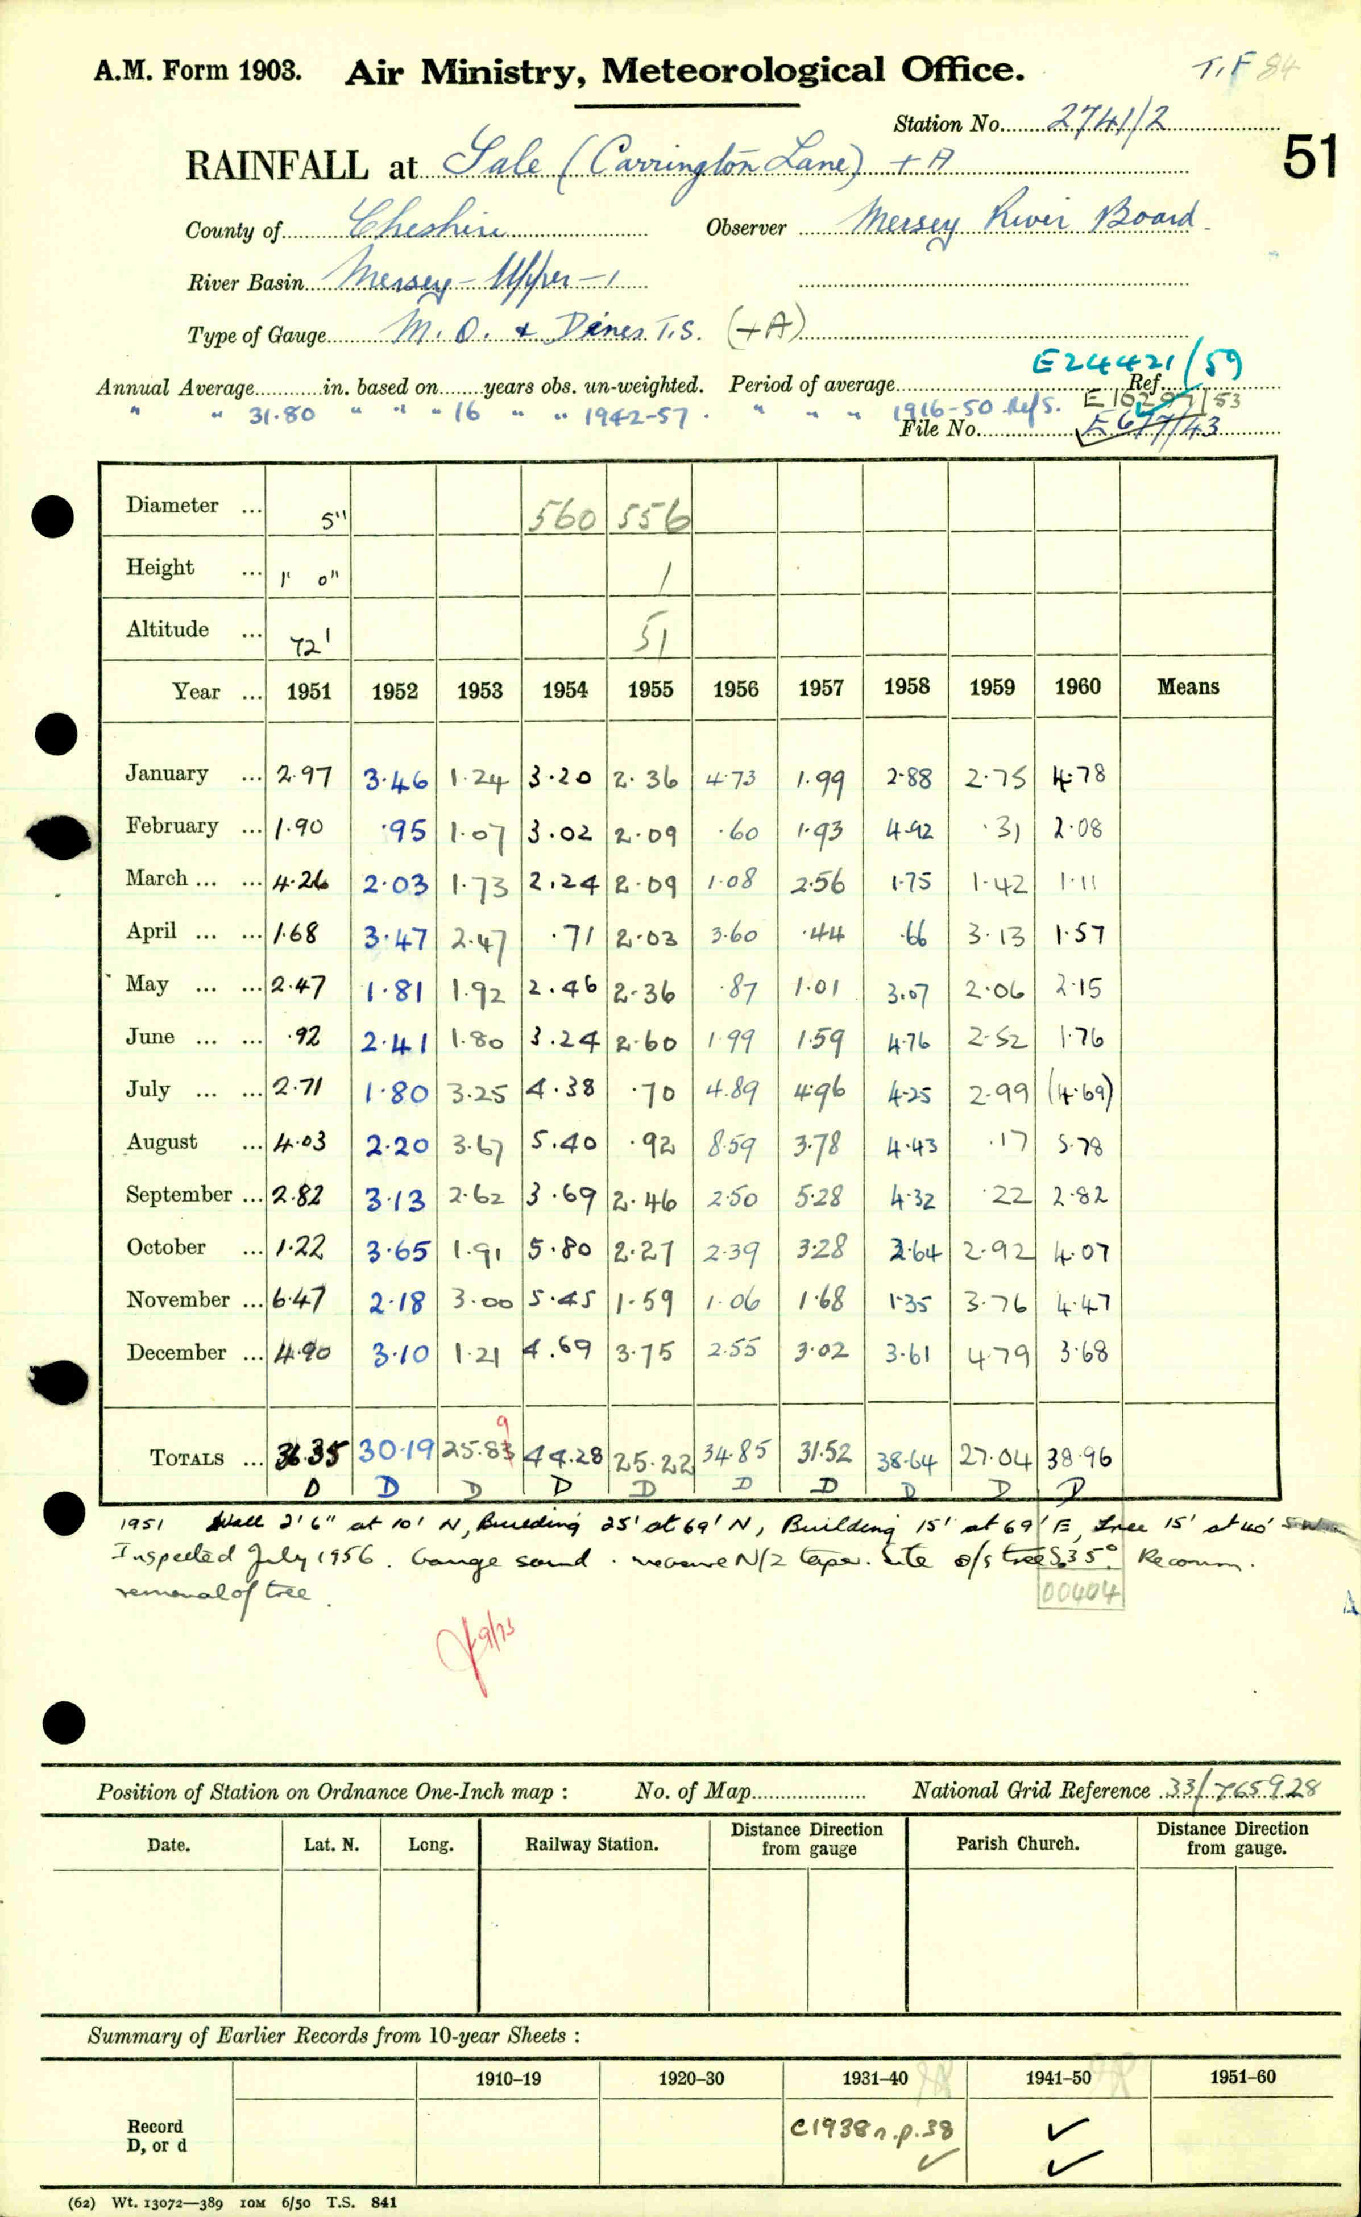 A.M. Form 1903. Air Ministry, Meteorological Office. T.F 84
Station No. 2741/2
51
RAINFALL at Sale (Carrington Lane) + A
County of Cheshire Observer Mersey River Board
River Basin Mersey - Upper - 1
Type of Gauge M.O. & Dines T.S. (+A)
E24421/59
Annual Average in. based on years obs. un-weighted. Period of average Ref.
" " 31.80 " " " 16 " " 1942-57. " " " 1916-50 Refs. E10297/53
File No. E677/43
Diameter ... 5" 560 556
Height ... 1' 0" 1
Altitude ... 72' 51
Year ... 1951 1952 1953 1954 1955 1956 1957 1958 1959 1960 Means
January ... 2.97 3.46 1.24 3.20 2.36 4.73 1.99 2.88 2.75 4.78
February ... 1.90 .95 1.07 3.02 2.09 .60 1.93 4.92 .31 2.08
March ... ... 4.26 2.03 1.73 2.24 2.09 1.08 2.56 1.75 1.42 1.11
April ... ... 1.68 3.47 2.47 .71 2.03 3.60 .44 .66 3.13 1.57
May ... ... 2.47 1.81 1.92 2.46 2.36 .87 1.01 3.07 2.06 2.15
June ... ... .92 2.41 1.80 3.24 2.60 1.99 1.59 4.76 2.52 1.76
July ... ... 2.71 1.80 3.25 4.38 .70 4.89 4.96 4.25 2.99 (4.69)
August ... 4.03 2.20 3.67 5.40 .92 8.59 3.78 4.43 .17 5.78
September ... 2.82 3.13 2.62 3.69 2.46 2.50 5.28 4.32 .22 2.82
October ... 1.22 3.65 1.91 5.80 2.27 2.39 3.28 2.64 2.92 4.07
November ... 6.47 2.18 3.00 5.45 1.59 1.06 1.68 1.35 3.76 4.47
December ... 4.90 3.10 1.21 4.69 3.75 2.55 3.02 3.61 4.79 3.68
9
TOTALS ... 36.35 30.19 25.83 44.28 25.22 34.85 31.52 38.64 27.04 38.96
D D D D D D D D D D
1951 Wall 2'6" at 10' N, Building 25' at 69' N, Building 15' at 69' E, Tree 15' at 40' SW
Inspected July 1956. Gauge sound. measure N/2 taper. Site o/s tree S35° Recomm.
removal of tree.
00404
9/73
Position of Station on Ordnance One-Inch map : No. of Map National Grid Reference 33/765928
Date. Lat. N. Long. Railway Station. Distance Direction from gauge Parish Church. Distance Direction from gauge.
Summary of Earlier Records from 10-year Sheets :
1910–19 1920–30 1931–40 1941–50 1951–60
Record D, or d C1938 n.p.38 ✓ ✓ ✓
(62) Wt. 13072—389 10M 6/50 T.S. 841